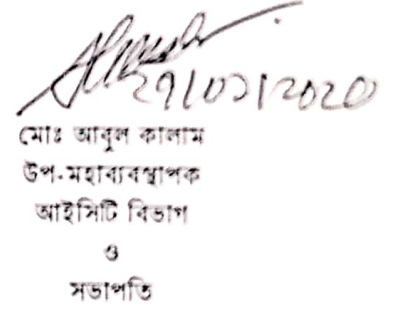 29/01/2020
মোঃ আবুল কালাম
উপ-মহাব্যবস্থাপক
আইসিটি বিভাগ
ও
সভাপতি